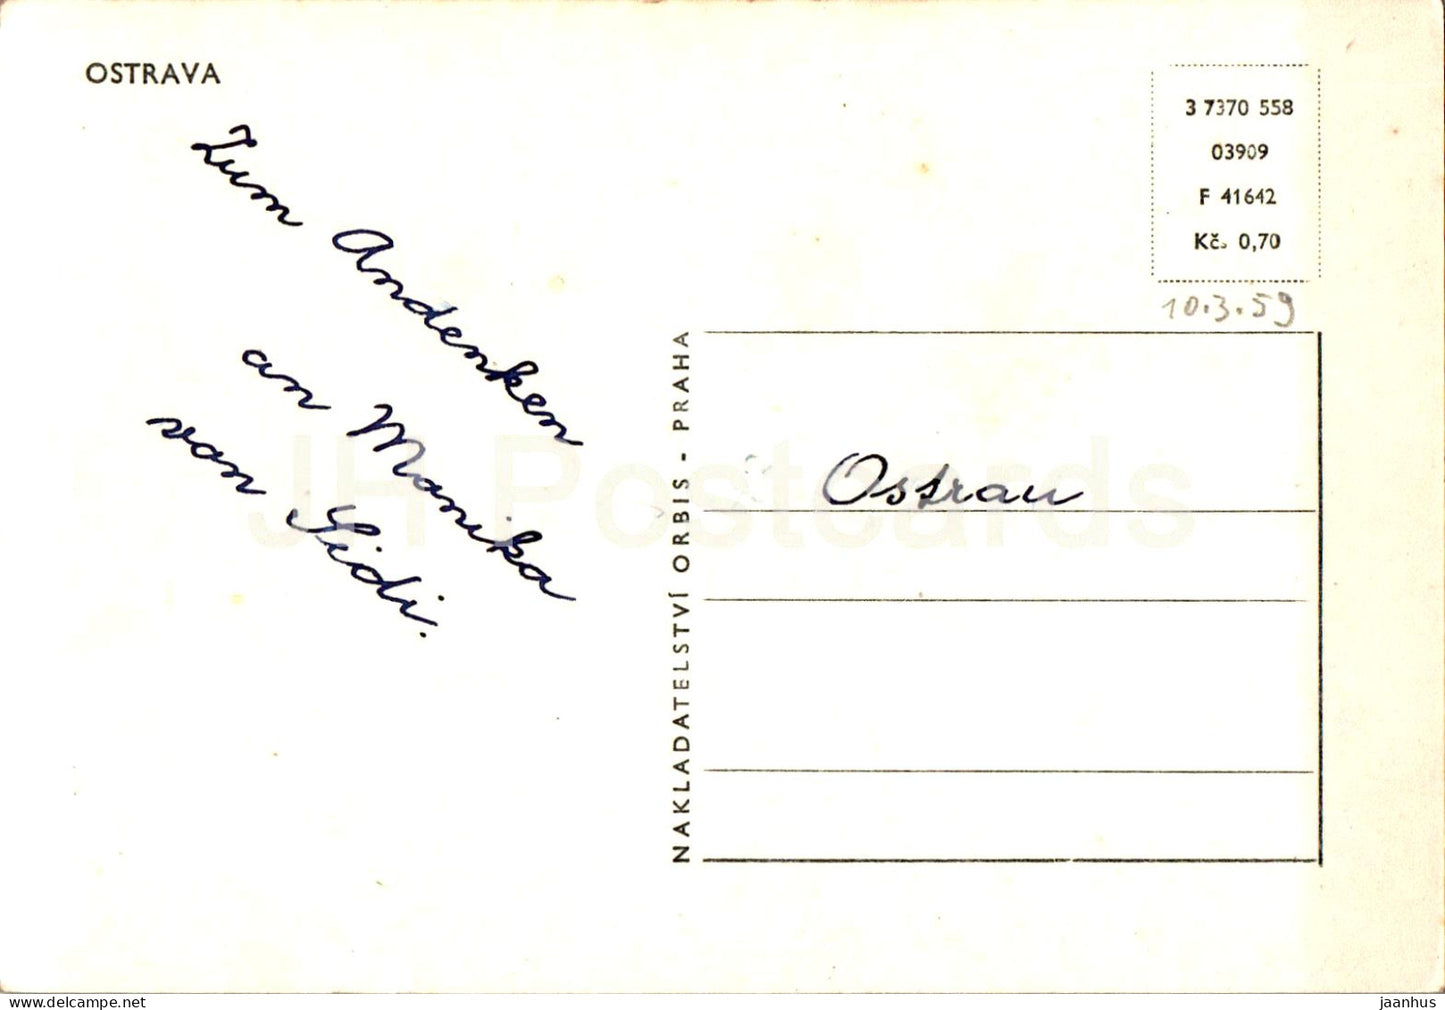 OSTRAVA
Zum Andenken
an Monika
von Sidi.
3 7370 558
03909
F 41642
Kčs 0,70
10.3.59
NAKLADATELSTVÍ ORBIS - PRAHA
Ostrau
JH Postcards
www.delcampe.net
jaanhus